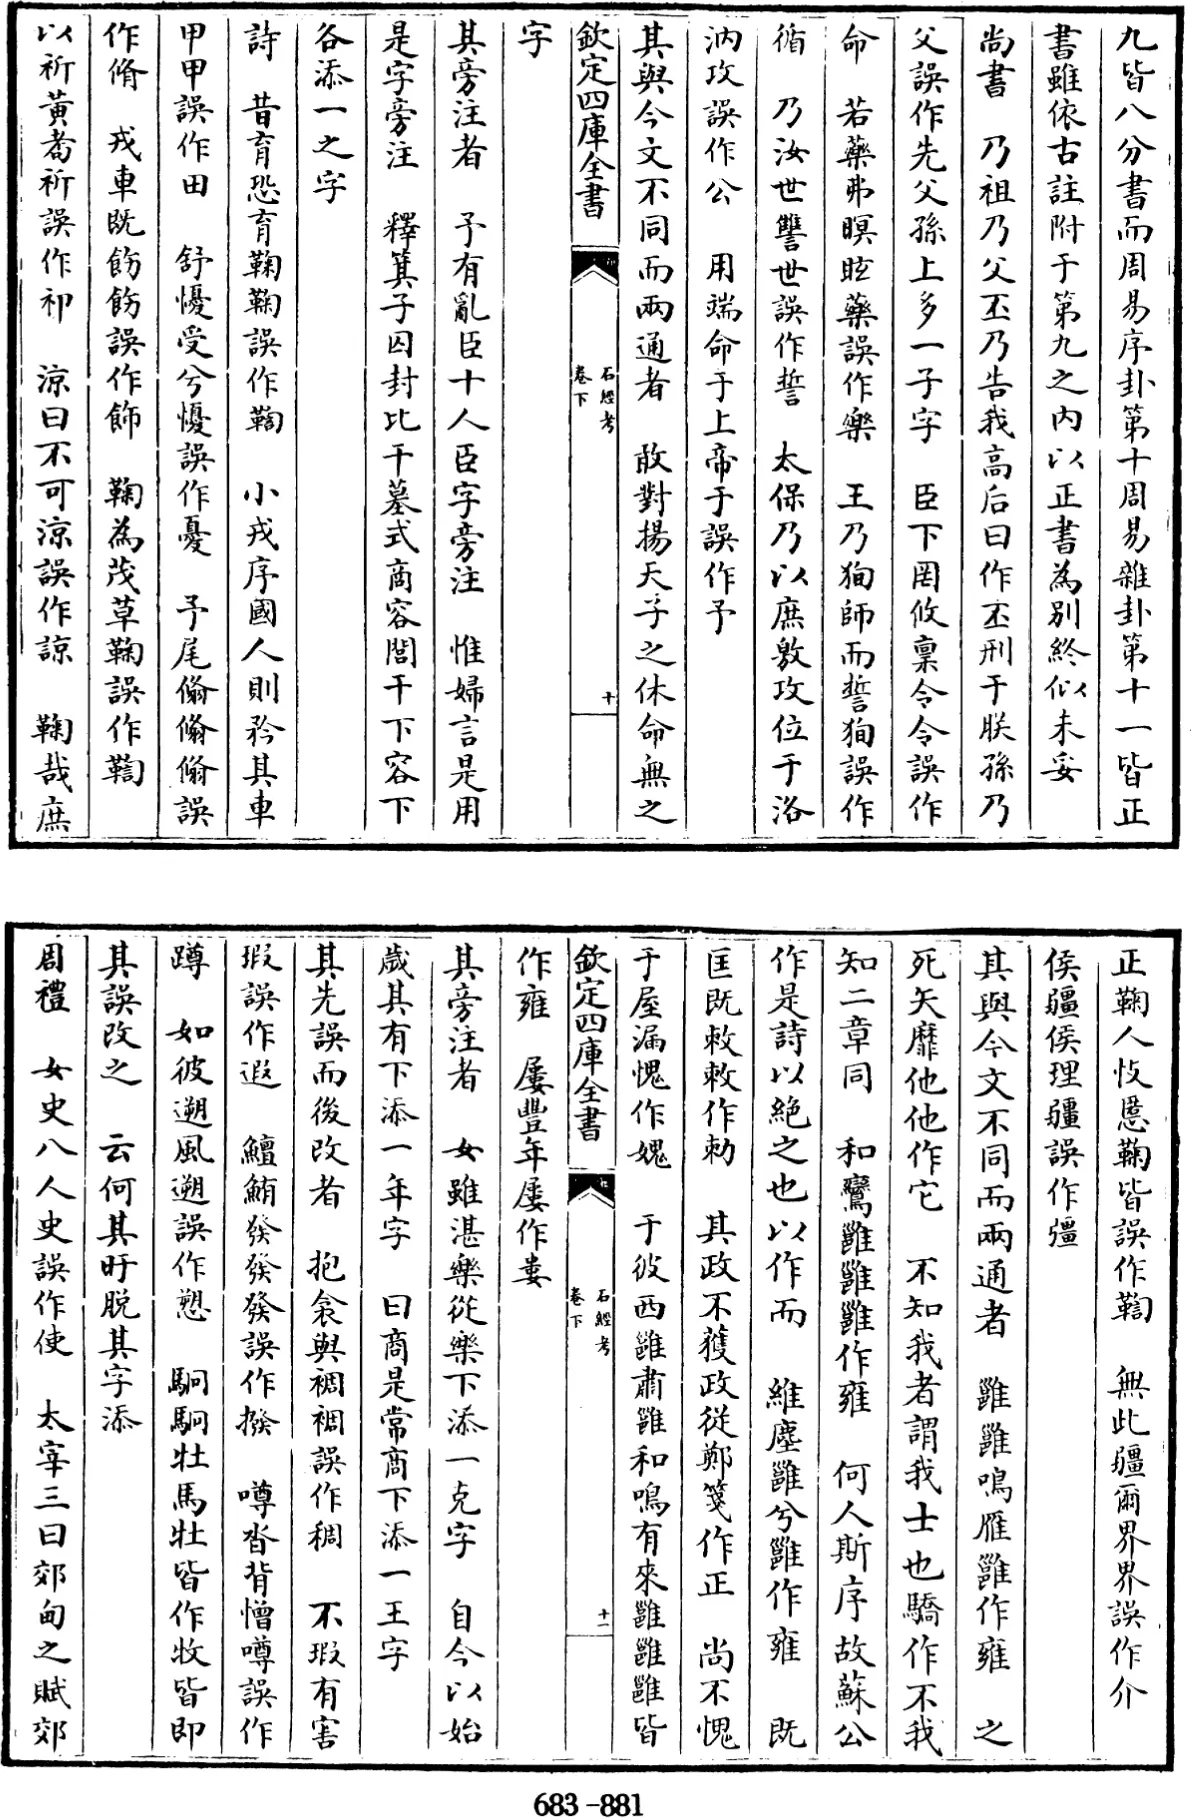 九皆八分書而周易序卦第十周易雜卦第十一皆正
書雖依古註附于第九之内以正書為別終似未妥
尚書　乃祖乃父丕乃告我高后曰作丕刑于朕孫乃
父誤作先父孫上多一子字　臣下罔攸稟令令誤作
命　若藥弗瞑眩藥誤作樂　王乃狥師而誓狥誤作
循　乃汝世讐世誤作誓　太保乃以庶敷攻位于洛
汭攻誤作公　用端命于上帝于誤作予
其與今文不同而兩通者　敢對揚天子之休命無之
字
欽定四庫全書
石經考
卷下
十
其旁注者　予有亂臣十人臣字旁注　惟婦言是用
是字旁注　釋箕子囚封比干墓式商容閭干下容下
各添一之字
詩　昔育恐育鞫鞫誤作鞫　小戎序國人則矜其車
甲甲誤作田　舒懮受兮懮誤作憂　予尾翛翛翛誤
作脩　戎車既飭飭誤作飾　鞫為茂草鞫誤作鞫
以祈黃耉祈誤作祁　涼曰不可涼誤作諒　鞫哉庶
正鞫人忮慝鞫皆誤作鞫　無此疆爾界界誤作介
侯疆侯理疆誤作彊
其與今文不同而兩通者　雝雝鳴雁雝作雍　之
死矢靡他他作它　不知我者謂我士也驕作不我
知二章同　和鸞雝雝雝作雍　何人斯序故蘇公
作是詩以絶之也以作而　維塵雝兮雝作雍　既
匡既敕敕作勅　其政不獲政從鄭箋作正　尚不愧
于屋漏愧作媿　于彼西雝肅雝和鳴有來雝雝雝皆
欽定四庫全書
石經考
卷下
十一
作雍　屢豐年屢作婁
其旁注者　女雖湛樂從樂下添一克字　自今以始
歲其有下添一年字　曰商是常商下添一王字
其先誤而後改者　抱衾與裯裯誤作稠　不瑕有害
瑕誤作遐　鱣鮪發發發誤作撥　噂沓背憎噂誤作
蹲　如彼遡風遡誤作愬　駉駉牡馬牡皆作牧皆即
其誤改之　云何其盱脱其字添
周禮　女史八人史誤作使　太宰三曰郊甸之賦郊
683-881